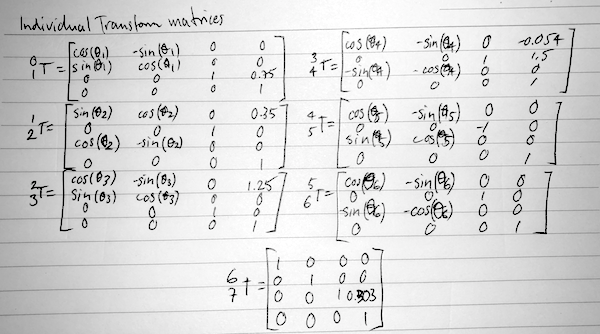 Individual Transform matrices
0 1 T = [ cos(θ1) -sin(θ1) 0 0
sin(θ1) cos(θ1) 0 0
0 0 1 0.75
0 0 0 1 ]
3 4 T = [ cos(θ4) -sin(θ4) 0 -0.054
0 0 1 1.5
-sin(θ4) -cos(θ4) 0 0
0 0 0 1 ]
1 2 T = [ sin(θ2) cos(θ2) 0 0.35
0 0 1 0
cos(θ2) -sin(θ2) 0 0
0 0 0 1 ]
4 5 T = [ cos(θ5) -sin(θ5) 0 0
0 0 -1 0
sin(θ5) cos(θ5) 0 0
0 0 0 1 ]
2 3 T = [ cos(θ3) -sin(θ3) 0 1.25
sin(θ3) cos(θ3) 0 0
0 0 1 0
0 0 0 1 ]
5 6 T = [ cos(θ6) -sin(θ6) 0 0
0 0 1 0
-sin(θ6) -cos(θ6) 0 0
0 0 0 1 ]
6 7 T = [ 1 0 0 0
0 1 0 0
0 0 1 0.303
0 0 0 1 ]